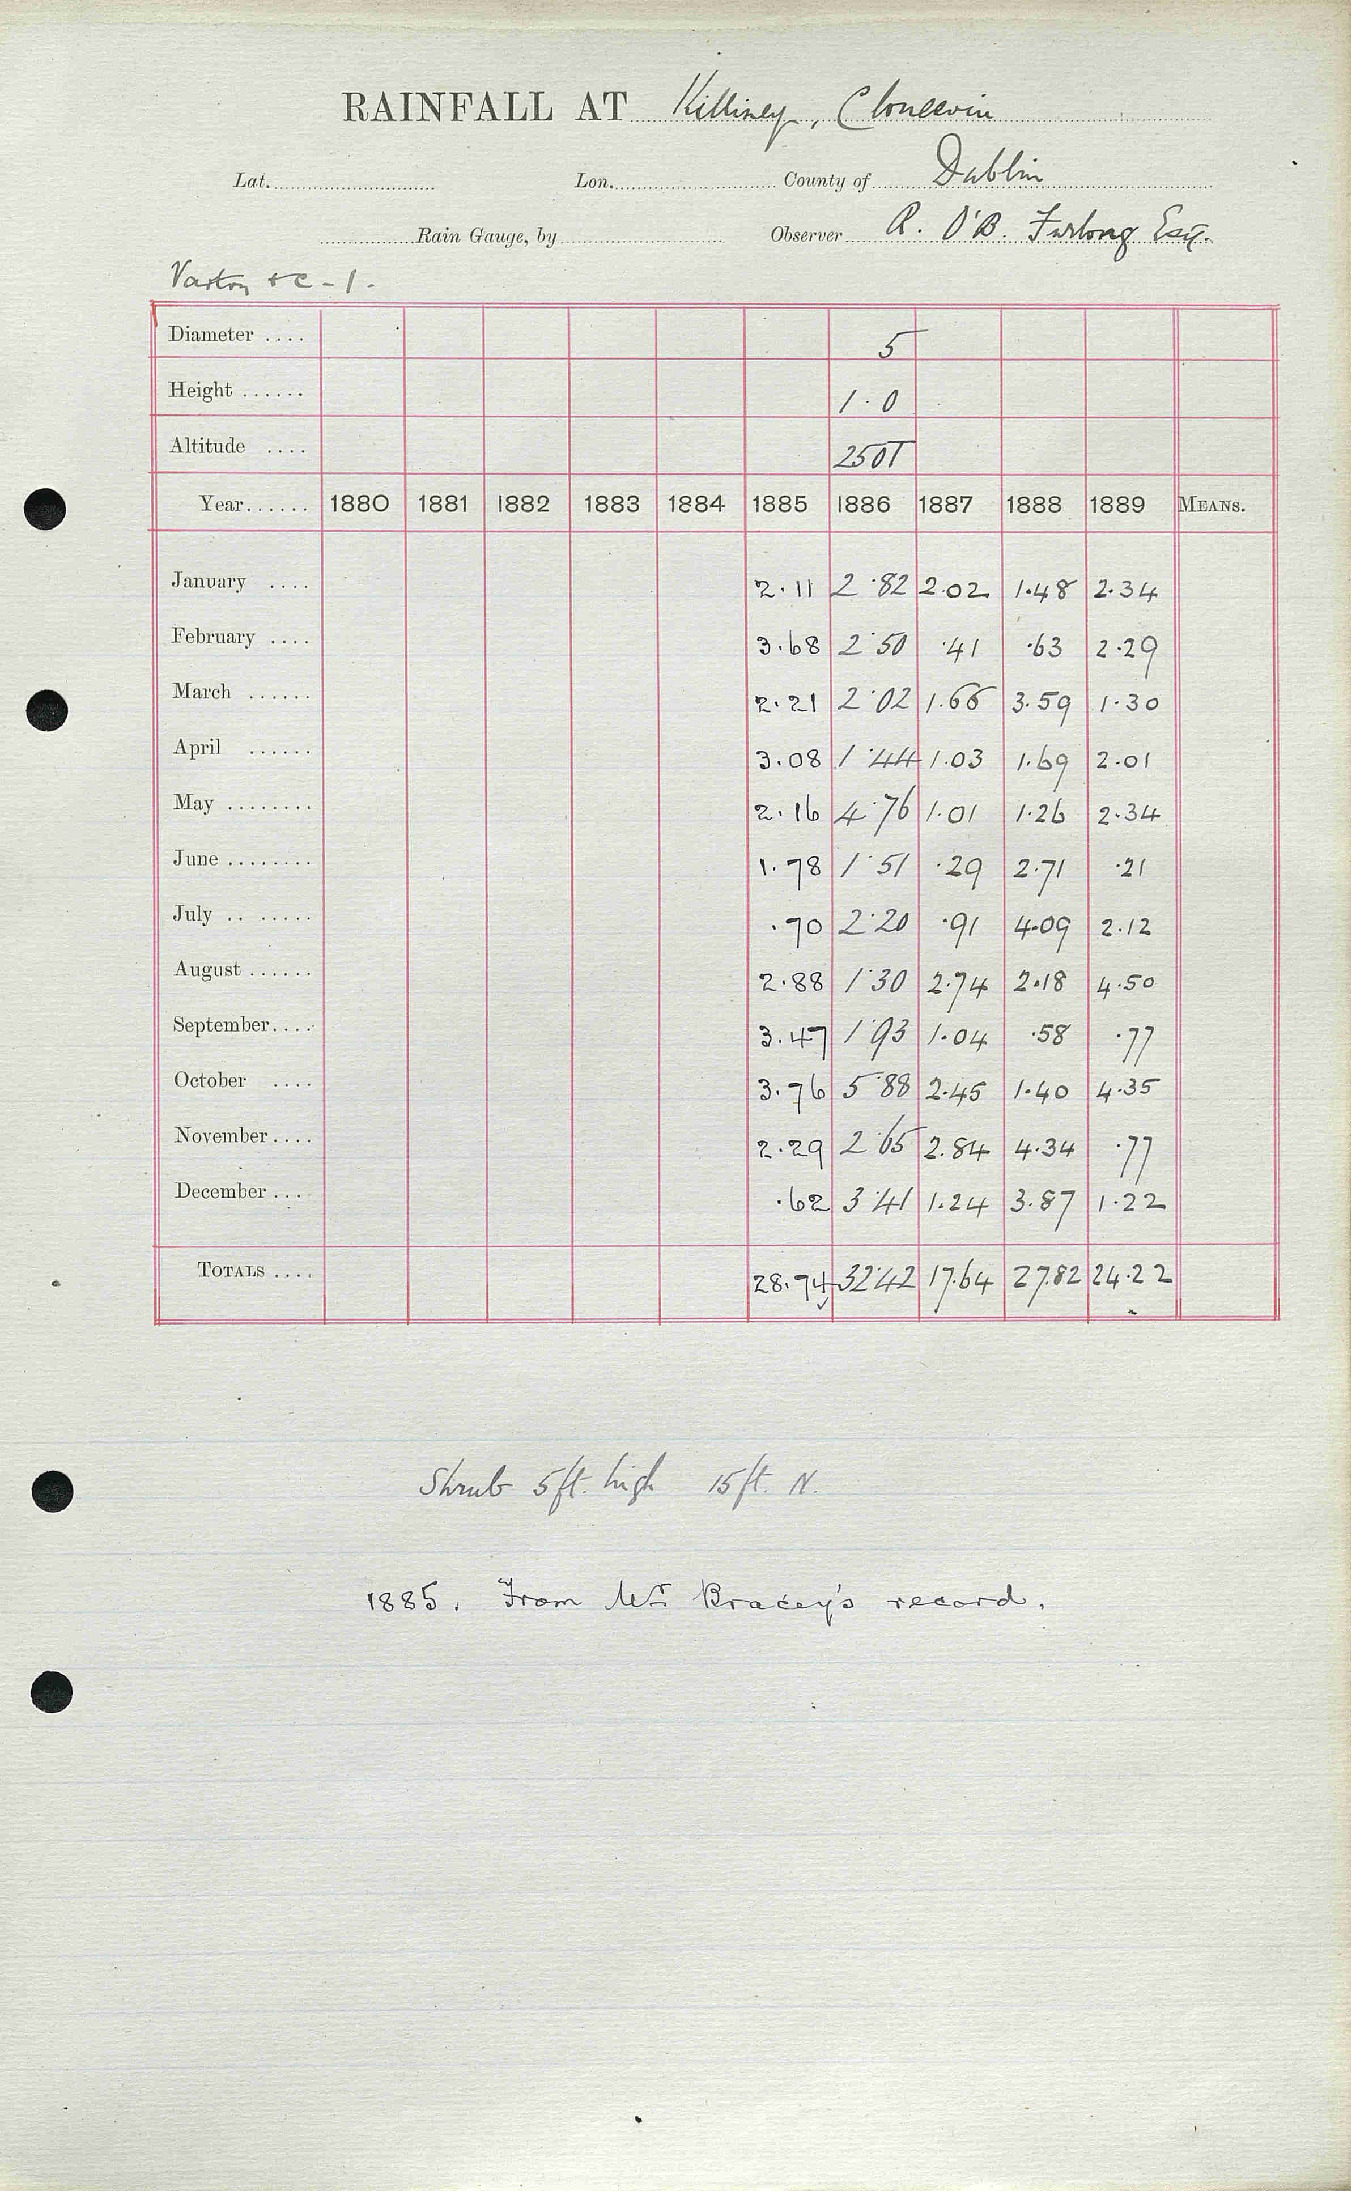 RAINFALL AT Killiney, Cloneevin
Lat. Lon. County of Dublin
Rain Gauge, by Observer R. O'B. Furlong Esq.
Vartry &c - 1.
Diameter .... 5
Height ...... 1.0
Altitude .... 250T
Year...... 1880 1881 1882 1883 1884 1885 1886 1887 1888 1889 MEANS.
January .... 2.11 2.82 2.02 1.48 2.34
February .... 3.68 2.50 .41 .63 2.29
March ...... 2.21 2.02 1.66 3.59 1.30
April ...... 3.08 1.44 1.03 1.69 2.01
May ........ 2.16 4.76 1.01 1.26 2.34
June ........ 1.78 1.51 .29 2.71 .21
July .. ..... .70 2.20 .91 4.09 2.12
August ...... 2.88 1.30 2.74 2.18 4.50
September.... 3.47 1.93 1.04 .58 .77
October .... 3.76 5.88 2.45 1.40 4.35
November.... 2.29 2.65 2.84 4.34 .77
December ... .62 3.41 1.24 3.87 1.22
TOTALS .... 28.74 32.42 17.64 27.82 24.22
Shrub 5ft. high 15ft. N.
1885. From Mr Bracey's record.